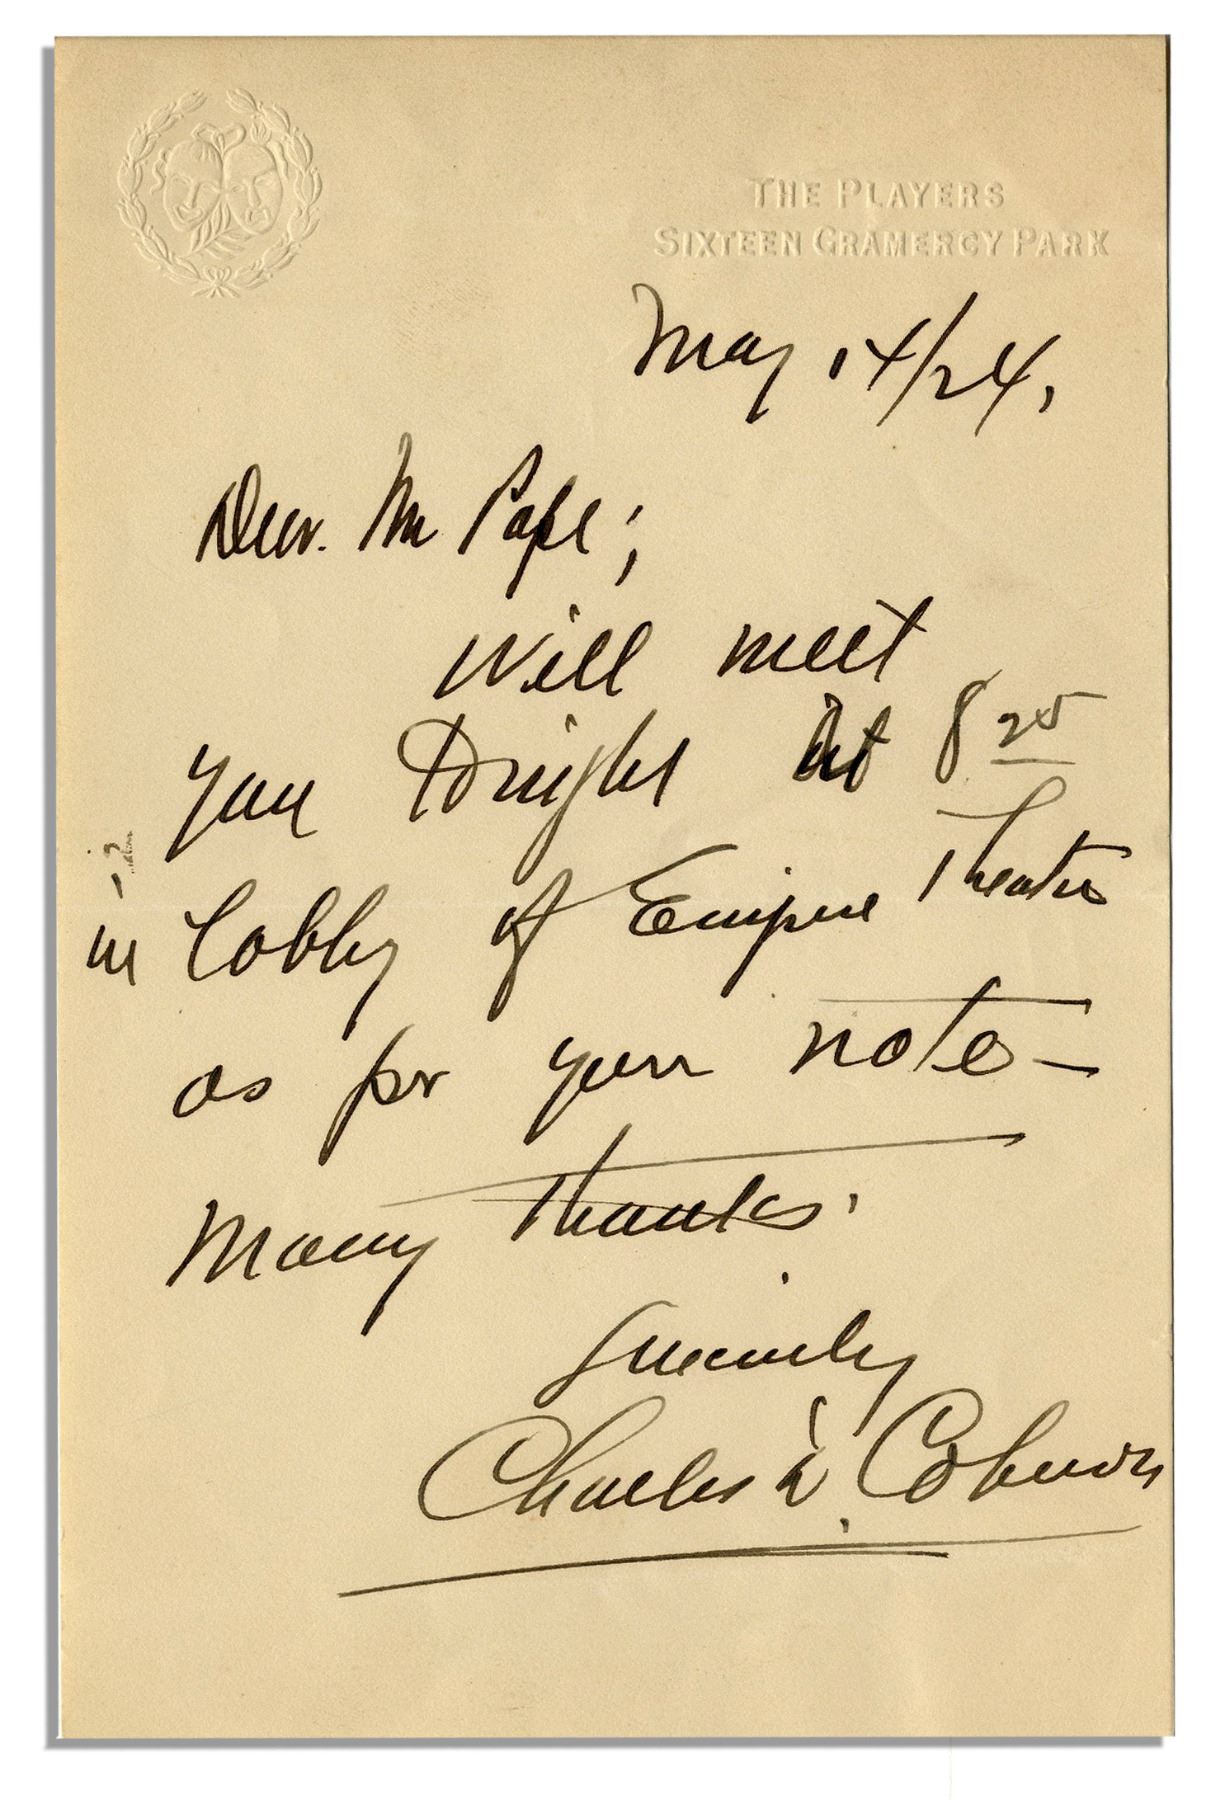 THE PLAYERS
SIXTEEN GRAMERCY PARK
May 14/24,
Dear. Mr Pape;
Will meet
you tonight at 8 25
in lobby of Empire Theatre
as per your note —
Many Thanks.
Sincerely
Charles D. Coburn